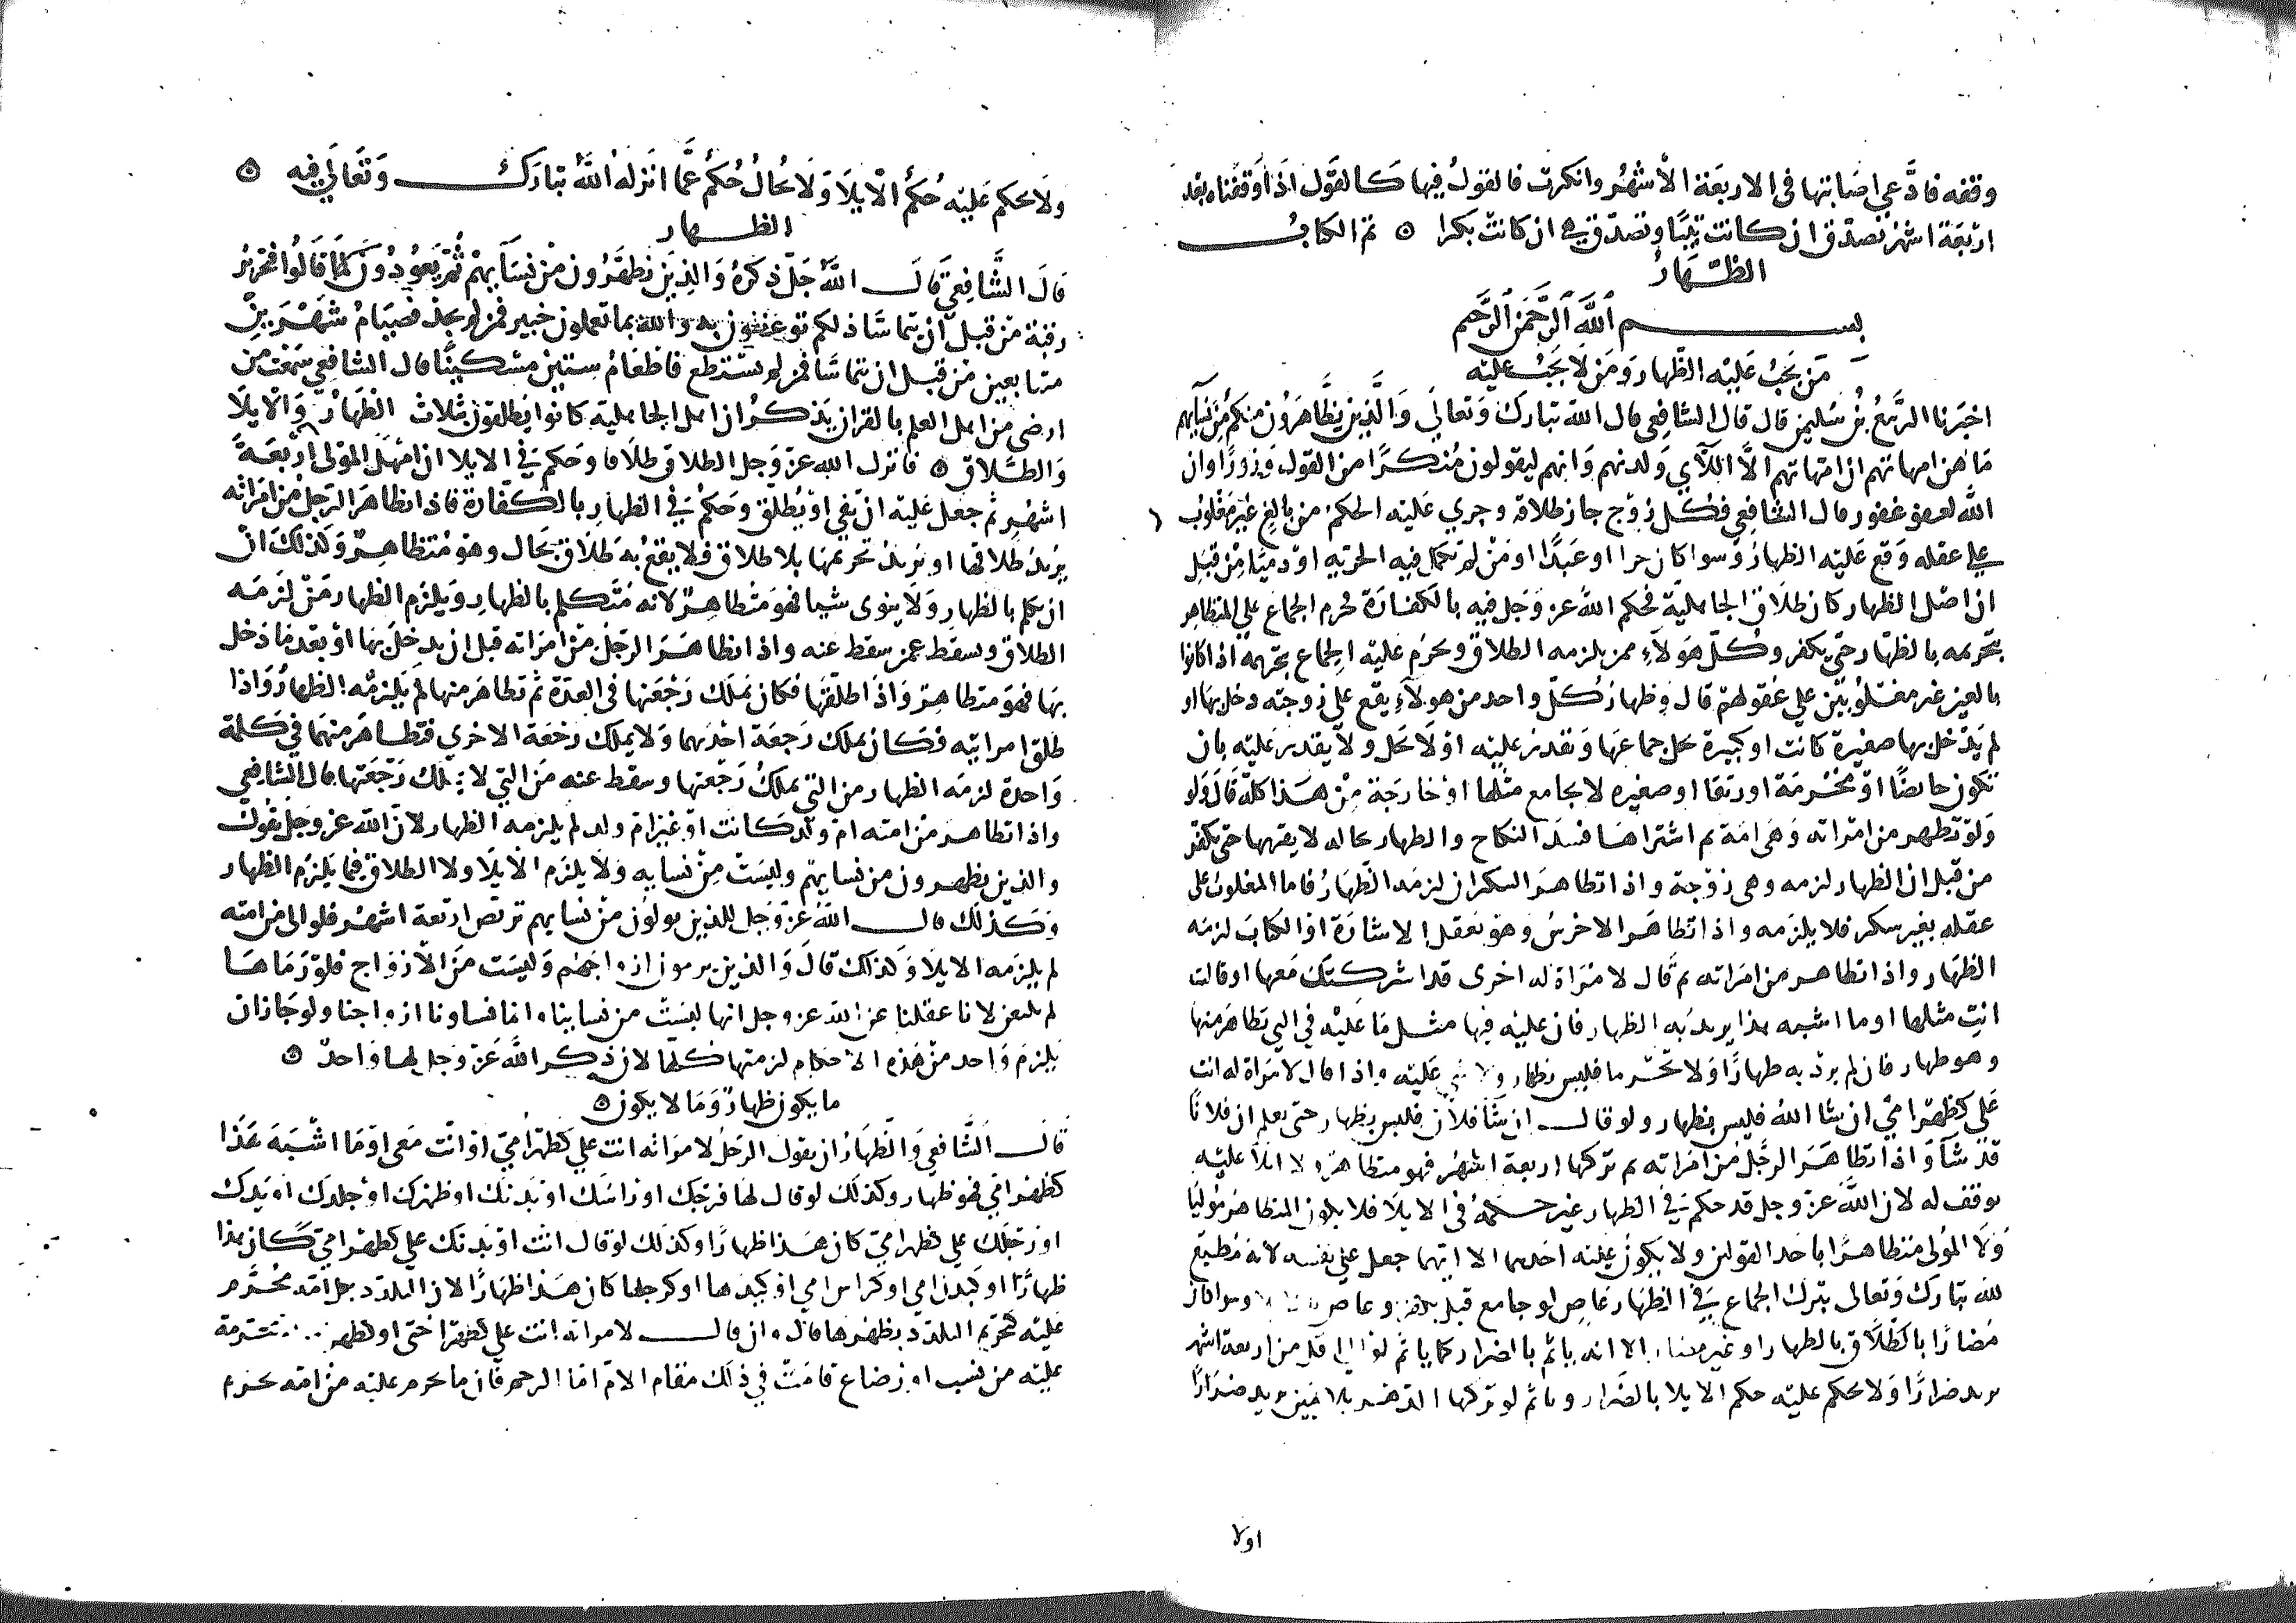 وقفه فادَّعي اصَابتها في الاربعَة الأشهُر وانكرت فالقولُ فيها كالقَول اذا اوقفناه بعد
اربَعَة اشهُر نصدّق ان كانت ثيّبًا وتصدّق هي ان كانت بكرا ۞ تم الكتابُ
الظّهَارُ
بسم اللَّه الرَّحمن الرَّحيم
مَن يجبُ عَليْه الظهار وَمَن لا يجَبُ عليه
اخبَرنا الرَّبيعُ بنُ سُليمن قال قال الشافِعي قال الله تبارك وَتعالى وَالَّذين يظَّاهَرُون منكم مِّن نسَآيهم
مَا هن امهاتهم ان امّهاتهم الاَّ اللآي وَلدنهم وَانهم ليقولون مُنكَرًا من القول وَزورًا وان
اللَّه لعفوّ غفور قال الشافعِي فكُل زوْج جاز طلاقه وجري عَليه الحكم من بالغ غيرَ مغلوب
علي عقله وَقع عَليْه الظهارُ وَسوا كان حرا او عَبدًا او مَنْ لم تكمل فيه الحريه اوْ ذميًّا مِّن قبَل
ان اصْل الظهار كان طلَاق الجاهلية فحكم اللَّهُ عز وَجَل فيه بالكفارَة فحرم الجماعَ على المتظاهر
بتحريمه بالظهار حتّي يكفر وكُلّ هَولآءِ ممن يلزمه الطلاق ويحرُم عليْه الجماع بتحريمه اذا كانوا
بالغين غير مغلُوبيْن علي عُقولهمْ قال وظهارُ كلّ واحد من هولآءِ يقَع على زوجته دخل بهَا او
لم يَدْخل بها صغيرَة كانت او كبيرة يحل جماعَهَا وَيقدر علَيْه اوْ لَا يحَل ولَا يقدر عَليْه بان
تكون حائضًا اوْ مُحْرمَة او رَتقا او صغيره لا يجامع مثلُها اوْ خارجَة مِّنْ هَذا كلّه قَالَ وَلو
وَلوْ تظهر من امراته وَهي امَة ثم اشتراهَا فسَدَ النكاح والظهار بحاله لا يقربها حتى يكفّر
من قبل ان الظهار لزمه وهي زوْجة واذا تظاهَرَ السكران لزمَه الظّهَارُ فاما المغلوب على
عقله بغير سكر فلا يلزمه واذا تظاهَرَ الاخرسُ وهوَ يَعقل الاشارَة او الكتابَ لزمه
الظهَار واذا تظاهر من امراته ثم قَال لامْرَاة له اخرى قد اشركتك مَعها او قالت
انتِ مثلها او ما اشبه هذا يريد به الظهار فان عليْه فيها مثل مَا عَليْه في التي تظاهَر منها
وهو ظهار فان لم يردْ به ظهارًا وَلا تحْريما فليس بظهار ولا شي عَليْه واذا قال لامْراة له انت
عَلى كظهْر امّي ان شا اللَّه فليس بظهار ولو قال ان شَا فلَان فليس بظهار حتى يعلم ان فلانًا
قدْ شآ وَاذا تظاهَرَ الرجُل مَن امَراته ثم تركها اربعة اشهُر فهو متظاهر ولا ايلَا عليْه
يوقف له لان اللَّهَ عز وجل قد حكم في الظهار غير حكمهُ في الايلَا فلا يكون المتظاهرُ مُوليًا
وَلَا المُولى متظاهرًا باحَد القولين ولا يكونُ عليْه احَدهما الا ايّهما جعل على نفسه لانهُ مُطيعٌ
لله تبارك وَتعالى بترك الجماع في الظهَار عَاصٍ لو جامع قبل يكفّر وعاص وسوا كان
مُضارًا بالظهار او غير مضار الا انه ياثم بالضرار كما ياثم لو الى اقل من اربعة اشهر
يريد ضرارًا وَلا يحكم عليْه حكم الايلا بالضّرار وياثم لو تركها الدّهر بلا يَمين يريد ضرَارًا
اولا
ولَا يحكم عَليْه حُكمُ الْايلَا وَلَا يُحالُ حُكمُ عَمَّا انَزلهُ اللَّهُ تبارَكَ وَتعَالَى فيه ۞
الظهار
قالَ الشَّافِعيّ قَالَ اللَّهُ جَلّ ذكرُهُ وَالذِين يَظهَّرُون منْ نسَآيهمْ ثُمَّ يَعُودُونَ لما قَالُوا فتحريرُ
رقبَة مّن قبل انْ يتماسَّا ذلكم توعظون به واللَّه بما تعملون خبير فمن لم يجدْ فصيَامُ شَهْرَيْنِ
متتابعين مَن قبل ان يتماسَّا فمن لم يسْتطع فاطعَامُ ستين مسْكينًا قال الشافعِي سَمعتُ من
ارضى من اهل العلم بالقران يَذكُر ان اهل الجاهليَة كانوا يطلقون بثلاث الظهَارُ وَالْايلَا
وَالطّلاق ۞ فانزل اللَّه عزّ وَجل الطلاق طلَاقا وحكم في الايلا ان امْهَل المولى ارْبَعَةَ
اشهُر ثم جعل عَليْه انْ يفي اوْ يُطلق وحَكمُ في الظهارِ بالكفّارة فاذا تظاهَرَ الرّجلُ من امَراته
يريد طلاقها او يريدُ تحريمهَا بلا طلاق فلا يقعُ به طلَاق بحَال وهو مُتظاهِرٌ وَكذلك انْ
ان تكلم بالظهار وَلَا ينوى شيا فهوَ متظاهِرٌ لانه مُتكلم بالظهارِ وَيلزم الظهار مَنْ لَزمَه
الطلاق ويسقط عمن سقط عنه واذا تظاهَرَ الرّجلُ مَن امرَاته قبل ان يدخلَ بهَا اوْ بَعْدمَا دَخل
بهَا فهوَ متظاهِرٌ وَاذَا طلقهَا فكان يَملَك رَجْعتها في العدّة ثم تظاهَرَ منها لَمْ يَلزمْهُ الظهارُ وَاذا
طَلق امراتيه فكَان يملك رَجعَة احْدَاهما وَلا يملك رَجْعَة الاخرى فتظاهَرَ منهمَا في كلمة
وَاحدة لزمه الظهار من التي يملك رَجْعتها وسقط عنه مَن التي لا يملك رَجْعَتها قال الشافعي
واذا تظاهر من امته امّ ولد كانت اوْ غيرَ ام ولد لم يلزمه الظهار لانّ اللَّه عز وَجَل يقُول
والذين يظهرون من نسايهم وليسَتْ مِنْ نسايه وَلَا يلزَم الْايلَا ولا الطلاق فيما يَلزم الظهار
وكذلك قال اللَّهُ عزّ وَجَل للذين يولون مّنْ نسايهم تربّص اربَعة اشهُر فلو الى من امته
لم يلزمه الايلَا وَكذلك قالَ وَالذين يرمون ازواجَهُم وَليسَت مَن الْأزوَاج فلوْ رَمَاهَا
لم يلتعن لانا عقلنا عن اللَّه عز وجل انها ليسَتْ من نساينا وانما نساونا ازواجنا ولو جَاز ان
يَلزمَ وَاحد منْ هَذه الاحكام لزمتها كُلها لان ذكر اللَّه عَزّ وَجَل لها وَاحدٌ ۞
ما يكون ظهارًا وَمَا لا يكون ۞
قالَ الشَّافِعي وَالظِّهَارُ ان يقول الرَّجُلُ لامرَاته انت علي كظهْر امّي اوْ انْت مَعى اوْ مَا اشبَهَ هَذَا
كظهر امّي فهو ظهار وكذلك لو قال لهَا فرجَك او رَاسَك او بَدنَك او ظهْرك اوْ جلدك او يَدك
او رجْلك علي كظهر امّي كان هَذا ظهارًا وكذلك لوْ قال انت اوْ بَدنك علي كظهْر امّي كَان هذا
ظهارًا او كبَدن امي او كرَاس امي اوْ كيدها او كرجلها كان هَذا ظهَارًا لان التلذّذ بكل امّه مُحرّم
عليْه كتحريم التلذّذ بظهْرها قال وان قال لامراته انت علي كظهْر اختى او كظهر مُحَرّمة
عليْه من نَسب او رَضاع قامَتْ في ذَلك مقام الامّ امَّا الرحم فان ما يحرم عليْه من امّه يحرم